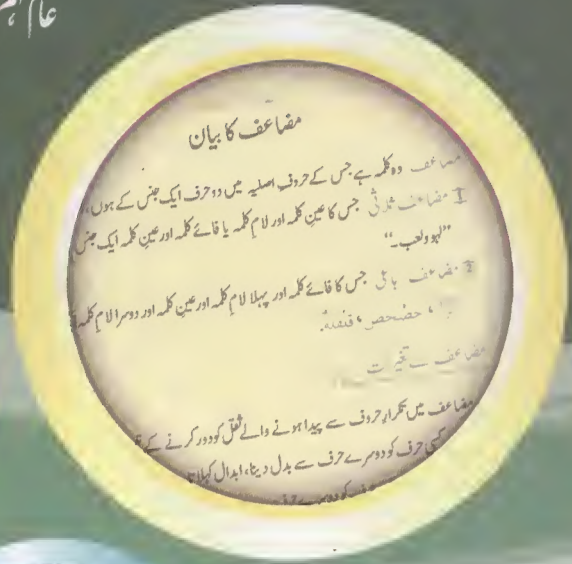 عام
مضاعف کا بیان
مضاعف وہ کلمہ ہے جس کے حروفِ اصلیہ میں دو حرف ایک جنس کے ہوں،
1 مضاعف ثلاثی جس کا عین کلمہ اور لام کلمہ یا فائے کلمہ اور عین کلمہ ایک جنس
”لہو ولعب۔“
2 مضاعف رباعی جس کا فائے کلمہ اور پہلا لام کلمہ اور عین کلمہ اور دوسرا لام کلمہ
، حصْحص،
مضاعف کے تغیرات
مضاعف میں تکرارِ حروف سے پیدا ہونے والے ثقل کو دور کرنے کے
کسی حرف کو دوسرے حرف سے بدل دینا، ابدال کہلاتا
کو دوسرے